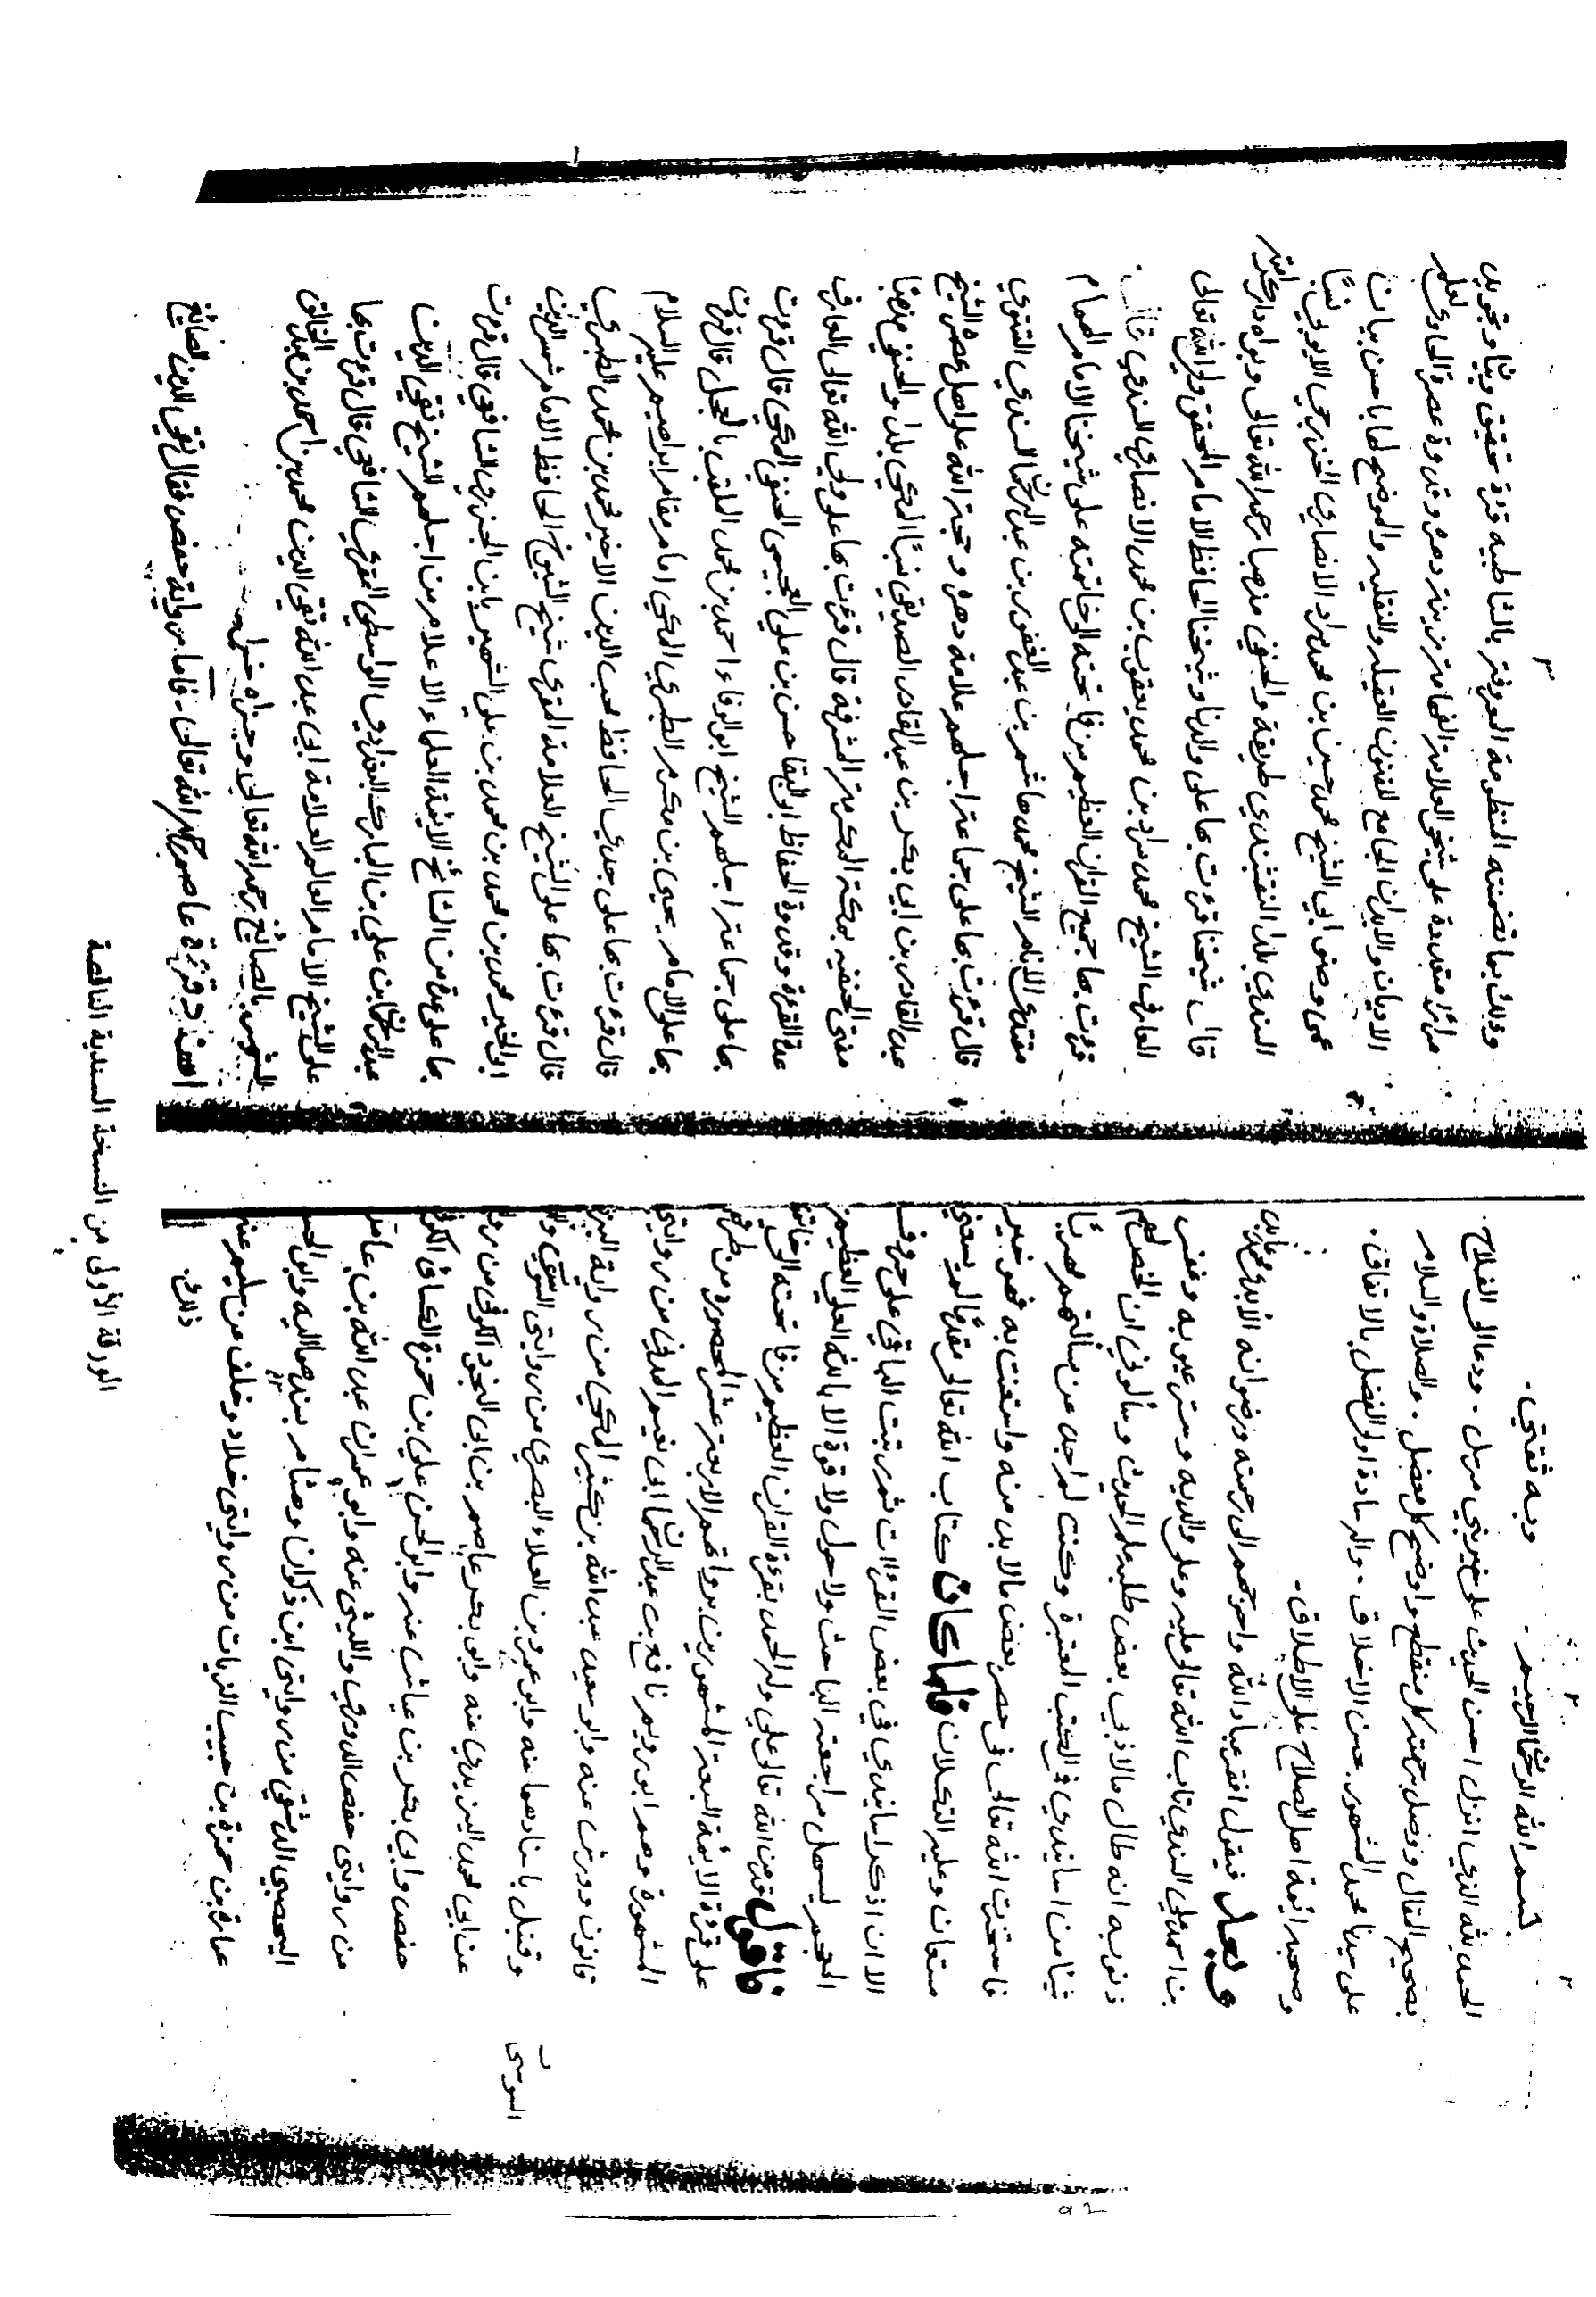 بسم الله الرحمن الرحيم . وبه ثقتي .
الحمد لله الذي انزل احسن الحديث على خير نبي مرسل . ودعا الى الفلاح .
بصحيح المقال ووصل برحمته كل منقطع واوضح كل معضل . والصلاة والسلام
على سيدنا محمد المشهور بحسن الاخلاق . والسادة اولى الفضل بالاتفاق .
وصحبه ائمة اهل الصلاح على الاطلاق .
وبعد فيقول افقر عباد الله واحوجهم الى رحمته ورضوانه الابدي محمد عابد
بن احمد علي السندي تاب الله تعالى عليه وعلى والديه وستر عيوبه وغفر
ذنوبه انه طال ما لاذ بي بعض طلبة علم الحديث وسألوني ان الخص لهم
شيئا من اسانيدي في الكتب المعتبرة وكنت لم اجد عن سألتهم مهربا
فاستخرت الله تعالى في حصر بعض ما لابد منه واستعنت به فهو خير
مستعان وعليه التكلان فلما كان كتاب الله تعالى مقدما لم يسعني
الا ان اذكر اسانيدي في بعض القرآات ثم رتبت الباقي على حروف
المعجم ليسهل مراجعته للباحث ولا حول ولا قوة الا بالله العلي العظيم
فاقول قد من الله تعالى علي وله الحمد بقراءة القرآن العظيم من فاتحته الى خاتمته
على قراءة الائمة السبعة المشهورين برواتهم الاربعة عشر المحصورة من طرقهم
المشهورة وهم ابو رويم نافع بن عبد الرحمن ابي نعيم المدني من روايتي
قالون وورش عنه وابو معبد عبد الله بن كثير المكي من رواية البزي
وقنبل باسنادهما عنه وابو عمرو بن العلاء البصري من روايتي الدوري والسوسي
عن ابي محمد اليزيدي عنه وابو بكر عاصم بن ابي النجود الكوفي من رواية
حفص وابي بكر بن عياش عنه وابو الحسن علي بن حمزة الكسائي الكوفي
من روايتي حفص الدوري والليثي عنه وابو عمران عبد الله بن عامر
اليحصبي الدمشقي من روايتي ابن ذكوان وهشام بسندهما اليه وابو
عمارة بن حمزة بن حبيب الزيات من روايتي خلاد وخلف عن سليم عنه
ذلك
السوسي
وذلك بما تضمنته المنظومة المعروفة بالشاطبية قراءة تحقيق وبيان وتجويد
مرارا متعددة على شيخي العلامة الفهامة زينة دهره وقدوة عصره الحاوي لعلم
الاديان والابدان الجامع لفنون العقلية والنقلية والموضح لها باحسن بيان
عمي وصنو ابي الشيخ محمد حسين بن محمد مراد الانصاري الخزرجي الايوبي نسبا
السندي بلدا النقشبندي طريقة والحنفي مذهبا رحمه الله تعالى وبوأه دار كرامته
قال شيخنا قرأت بها على والدنا وشيخنا الحافظ الامام المحقق ولي الله تعالى
العارف الشيخ محمد مراد بن محمد يعقوب بن محمد الانصاري السندي قال
قرأت بها جميع القرآن العظيم من فاتحته الى خاتمته على شيخنا الامام الهمام
مقتدى الانام الشيخ محمد هاشم بن عبد الغفور بن عبد الرحمن السندي التتوي
قال قرأت بها على جماعة اجلهم علامة دهره وحجة الله على اهل عصره الشيخ
عبد القادر بن ابي بكر بن عبد القادر الصديقي نسبا المكي بلدا والحنفي مذهبا
مفتي الحنفية بمكة المكرمة المشرفة قال قرأت بها على ولي الله تعالى العارف
عمدة القراء وقدوة الحفاظ ابو البقا حسن بن علي العجيمي الحنفي المكي قال قرأت
بها على جماعة اجلهم الشيخ ابو الوفاء احمد بن محمد الملقب بالعجل قال قرأت
بها على الامام يحيى بن مكرم الطبري المكي امام مقام ابراهيم عليه السلام
قال قرأت بها على جدي الحافظ محب الدين الاخير محمد بن محمد الطبري
قال قرأت بها على الشيخ العلامة المقرئ شيخ الشيوخ الحافظ الامام شمس الدين
ابي الخير محمد بن محمد بن محمد بن علي الشهير بابن الجزري الشافعي قال قرأت
بها على عدة من المشائخ الائمة العلماء والاعلام من اجلهم الشيخ تقي الدين
عبد الرحمن بن علي بن المبارك البغدادي الواسطي المقرئ الشافعي قال قرأت بها
على الشيخ الامام العالم العلامة ابي عبد الله تقي الدين محمد بن احمد بن عبد الخالق
الشهير بالصائغ رحمه الله تعالى وجزاه خيرا
اسناد قراءة عاصم رحمه الله تعالى . فاما من رواية حفص فقال تقي الدين الصائغ
الورقة الأولى من النسخة السندية الناقصة